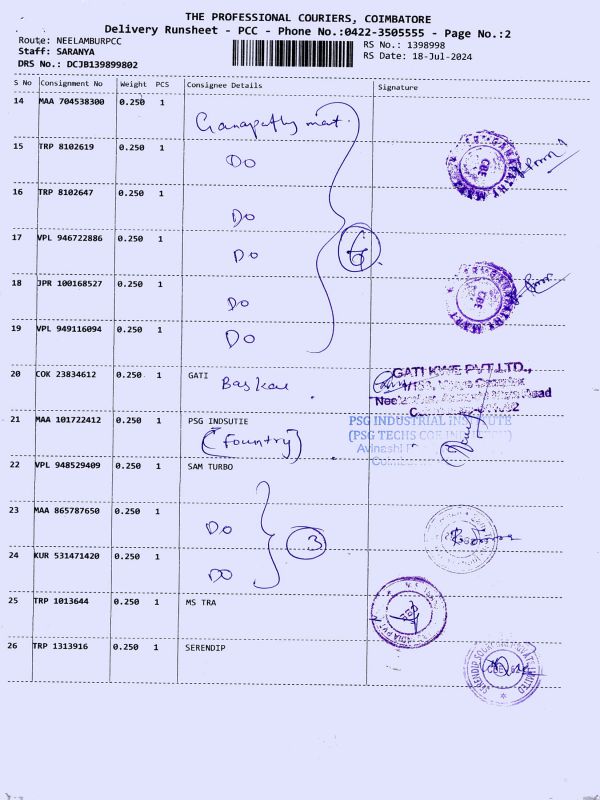 THE PROFESSIONAL COURIERS, COIMBATORE
Delivery Runsheet - PCC - Phone No.:0422-3505555 - Page No.:2
Route: NEELAMBURPCC
RS No.: 1398998
Staff: SARANYA
RS Date: 18-Jul-2024
DRS No.: DCJB139899802
S No Consignment No Weight PCS Consignee Details Signature
14 MAA 704538300 0.250 1
Ganapathy mart.
15 TRP 8102619 0.250 1
DO
16 TRP 8102647 0.250 1
DO
17 VPL 946722886 0.250 1
DO
6
18 JPR 100168527 0.250 1
DO
19 VPL 949116094 0.250 1
DO
20 COK 23834612 0.250 1 GATI
Baskar
GATI KWE PVT LTD.,
21 MAA 101722412 0.250 1 PSG INDSUTIE
(Fountry)
PSG INDUSTRIAL INSTITUTE
(PSG TECHS COE
Avinashi
22 VPL 948529409 0.250 1 SAM TURBO
23 MAA 865787650 0.250 1
DO
3
24 KUR 531471420 0.250 1
DO
25 TRP 1013644 0.250 1 MS TRA
26 TRP 1313916 0.250 1 SERENDIP